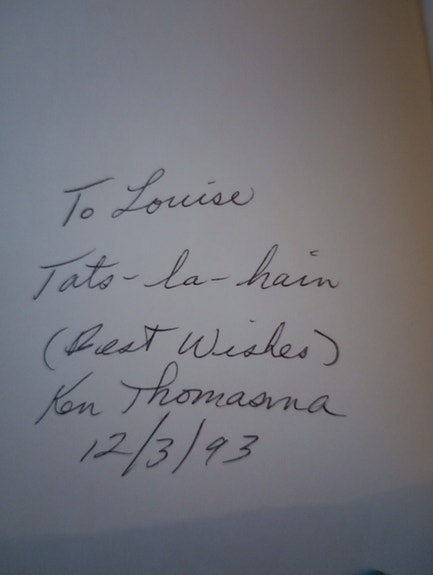 To Louise
Tats-la-hain
(Best Wishes)
Ken Thomasma
12/3/93